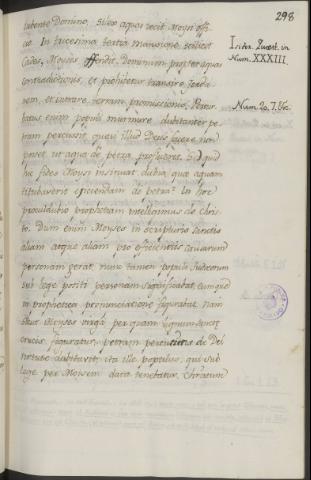 298
iubente Domino, silex aquas
In tricesima tertia mansione, scilicet
Cades, Moyses offendit Dominum propter aquas
contradictionis, et prohibetur transire Jorda-
nem, et intrare terram promissionis. Pertur-
batus enim populi murmure dubitanter pe-
tram percussit, quasi illud Deus facere non
posset ut aqua de petra proflueret. Sed quid
hic fides Moysi insinuat dubia, quae aquam
titubaverit eiiciendam de petra? In hoc
prophetiam intelligamus de Chris-
to. Dum enim Moyses in scripturis sanctis
aliam atque aliam pro efficientiis causarum
personam gerat, nunc tamen populi Judaeorum
sub lege positi personam significabat, eumque
in prophetica pronunciatione figurabat. Nam
sicut Moyses virga per quam signum
crucis figuratur, petram percutiens de Dei
virtute dubitavit, ita ille populus, qui sub
lege per Moysem data tenebatur, Christum
Isiba. Quaest. in
Num. XXXIII.
Num. 20. 7. &c.